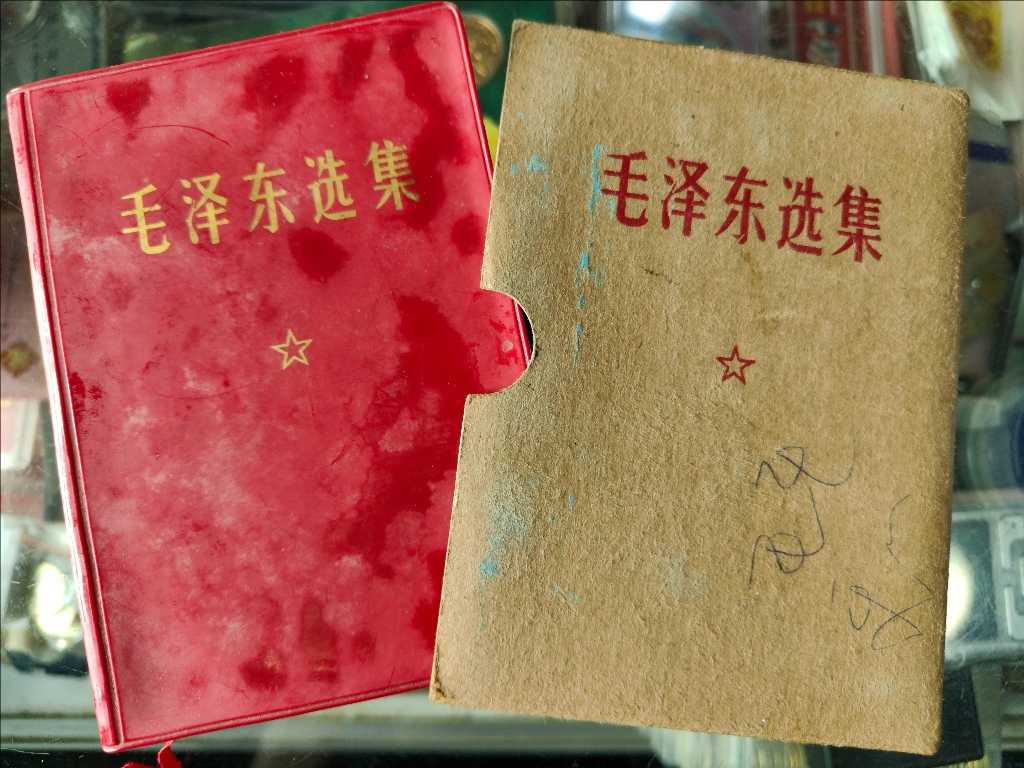 毛泽东选集
毛泽东选集